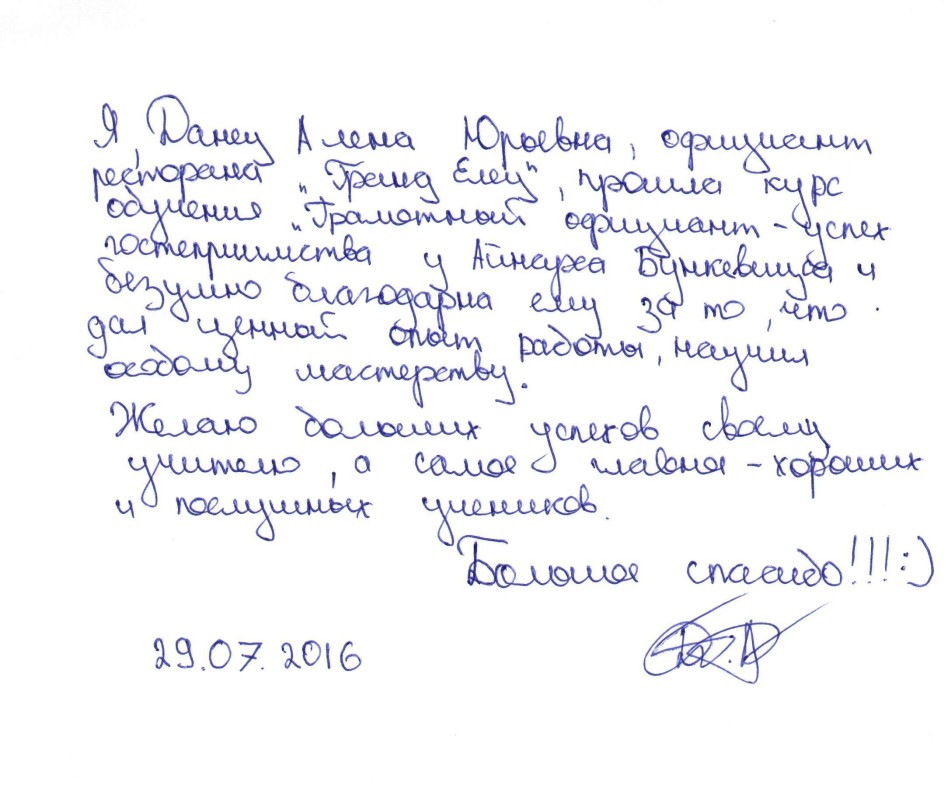 Я, Данец Алена Юрьевна, официант
ресторана "Гранд Елец", прошла курс
обучения "Грамотный официант - успех
гостеприимства у Айнарса Бункевицса и
безумно благодарна ему за то, что
дал ценный опыт работы, научил
особому мастерству.
Желаю больших успехов своему
учителю, а самое главное - хороших
и послушных учеников.
Большое спасибо!!! :)
29.07.2016